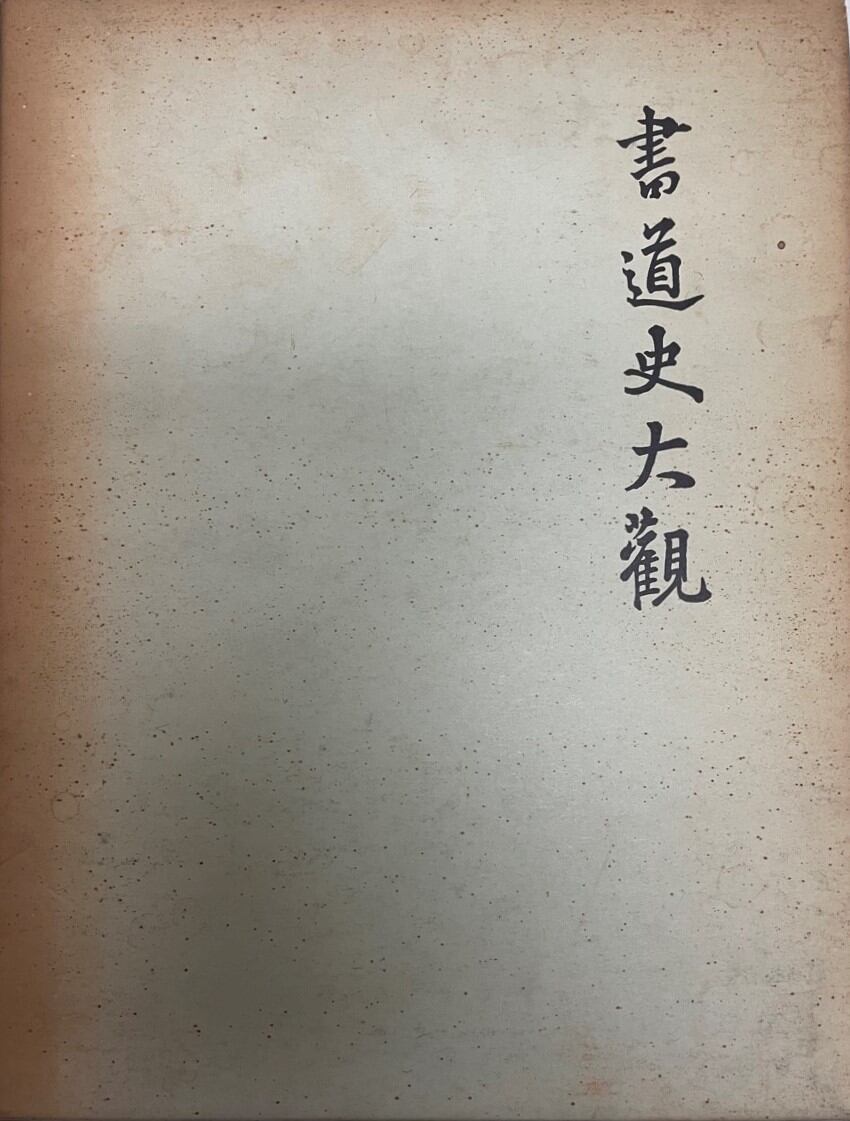 書道史大觀